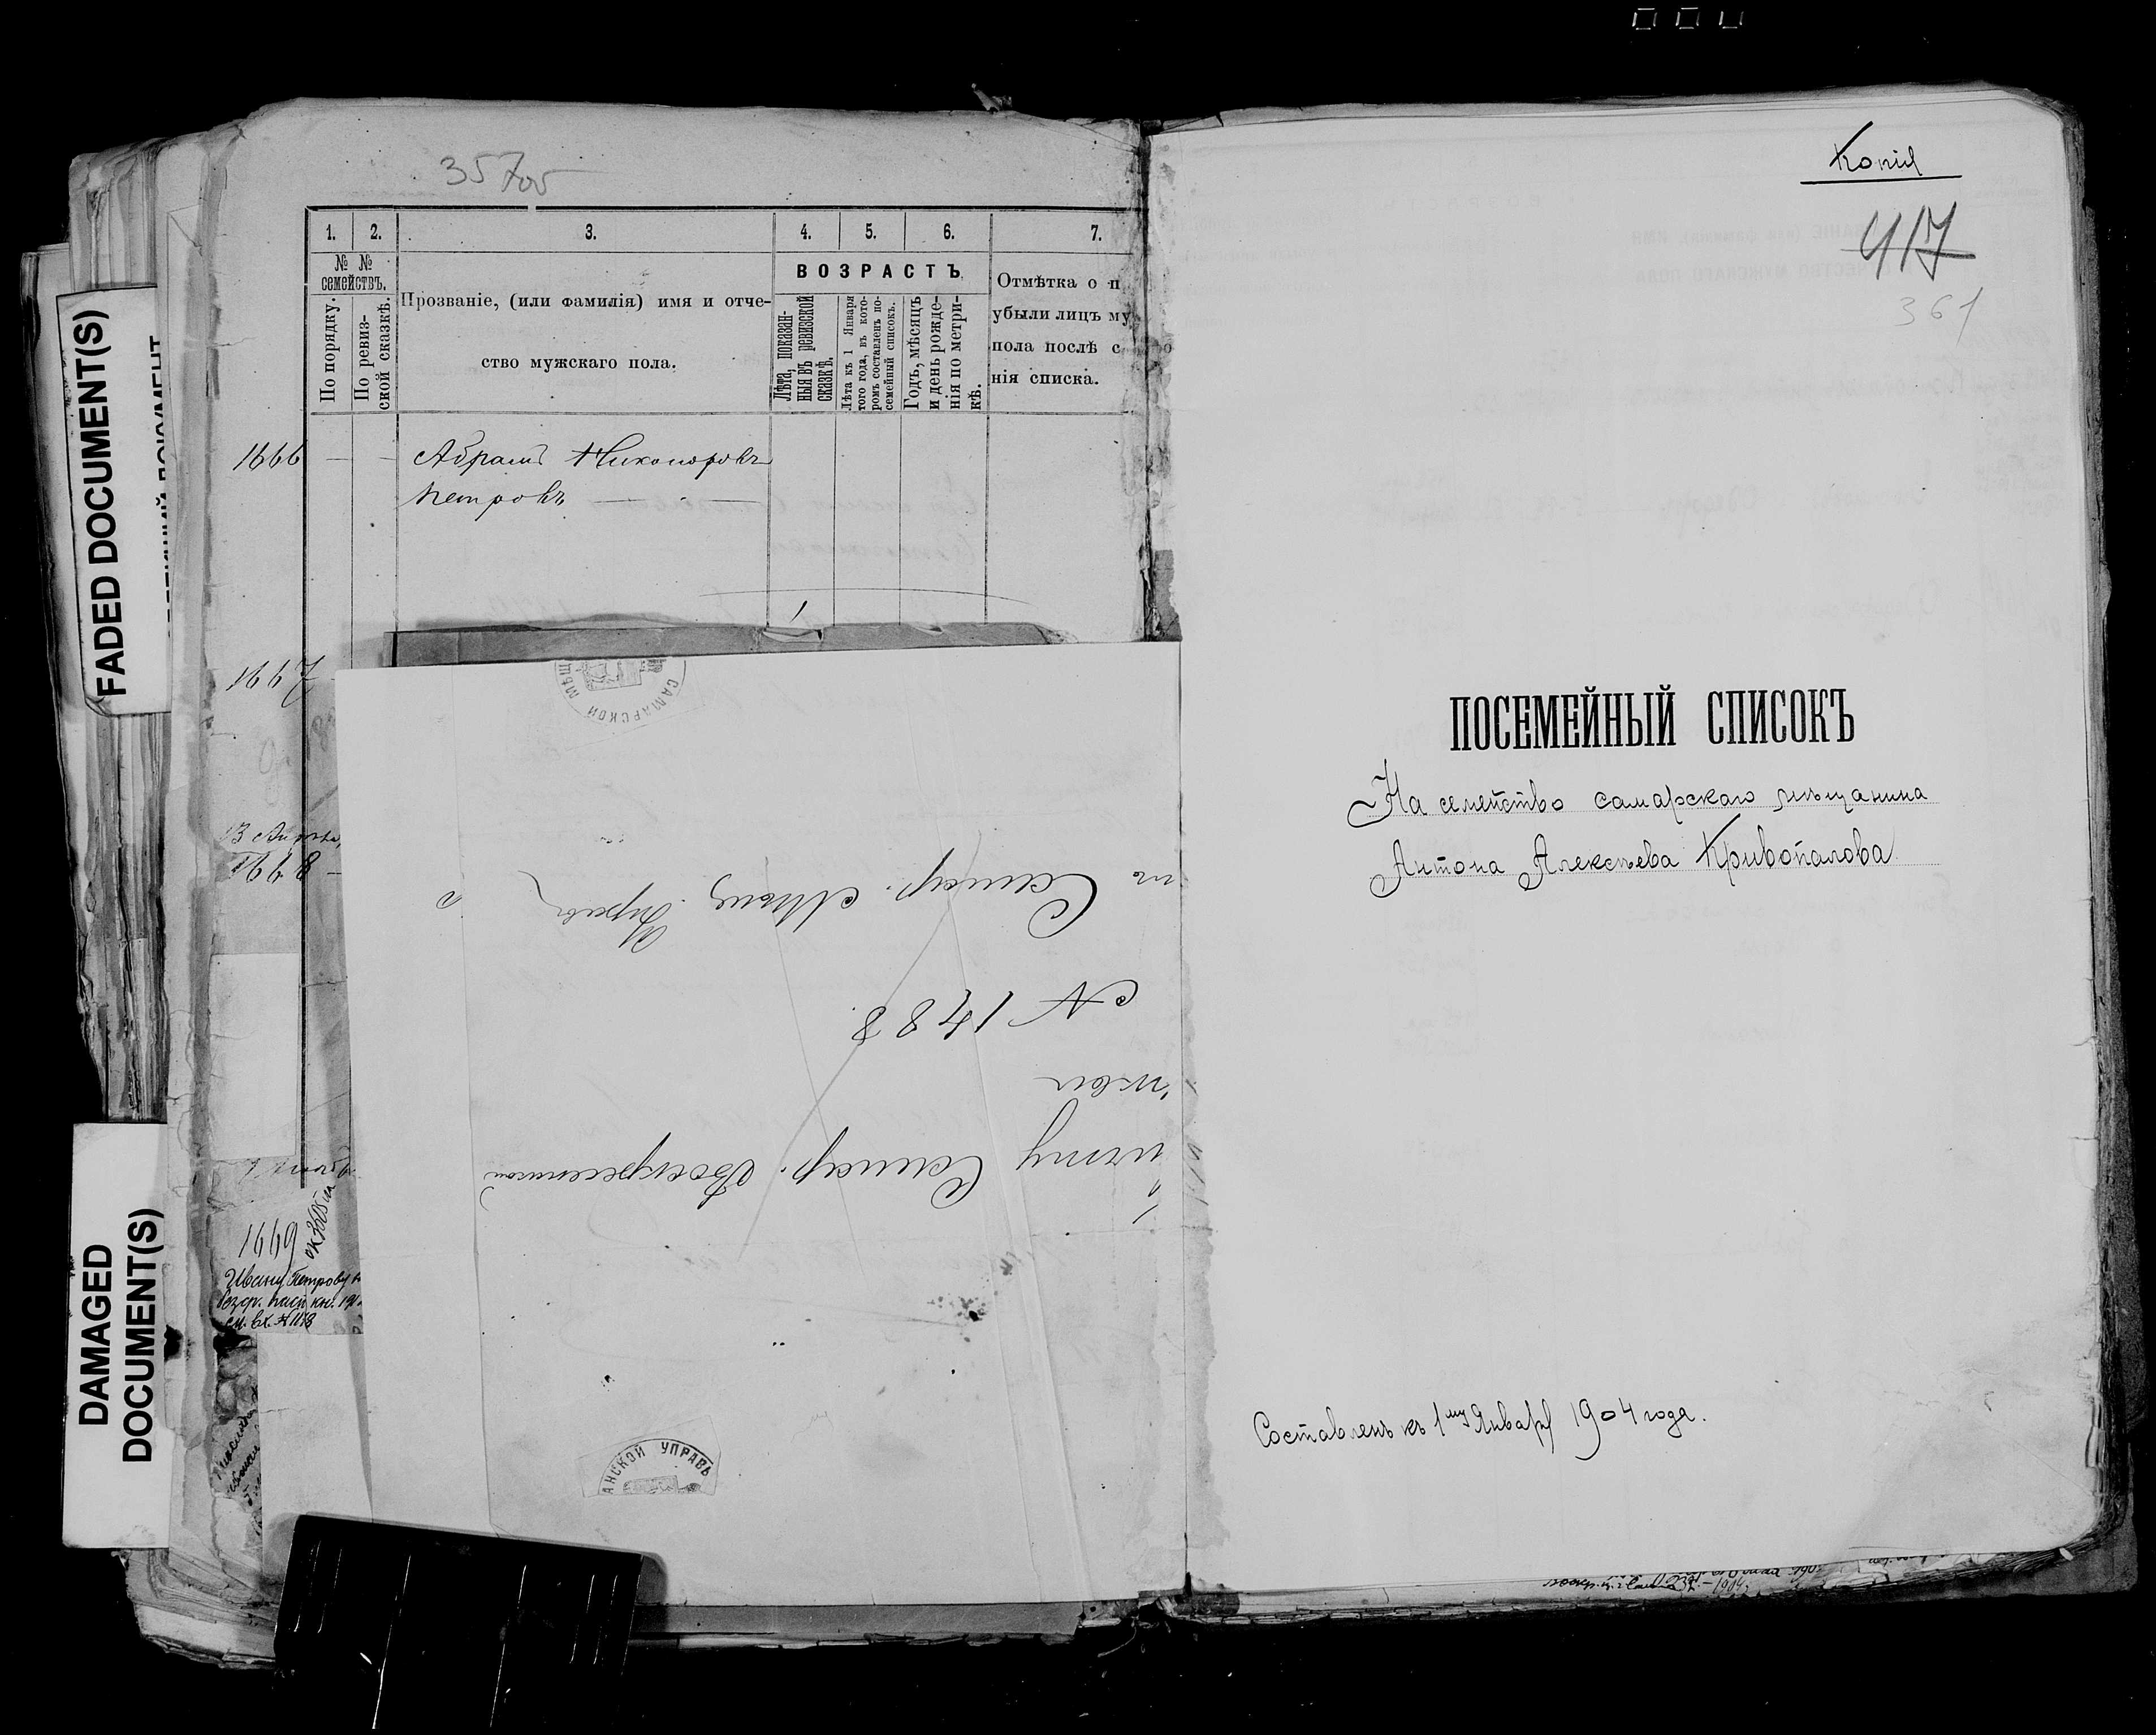 FADED DOCUMENT(S)
DAMAGED
DOCUMENT(S)
357об
1.
2.
3.
4.
5.
6.
7.
№ №
семействъ.
По порядку.
По ревиз-
ской сказкѣ.
Прозваніе, (или фамилія) имя и отче-
ство мужскаго пола.
ВОЗРАСТЪ
Лѣта, показан-
ныя въ ревизской
сказкѣ.
Лѣта къ 1 Января
того года, въ кото-
ромъ составленъ по-
семейный списокъ.
Годъ, мѣсяцъ
и день рожде-
нія по метри-
кѣ.
Отмѣтка о п
убыли лицъ му
пола послѣ с
нія списка.
1666
Абрамъ Никоноровъ
Петровъ
1667
1668
1669
Ивану Петрову
САМАРСКОЙ МѢЩ
Самар. Мѣщ. Управы
№ 1488
Самар. Воскресенской
АНСКОЙ УПРАВЪ
Копія
417
361
ПОСЕМЕЙНЫЙ СПИСОКЪ
На семейство самарскаго мѣщанина
Антона Алексѣева Кривопалова
Составленъ къ 1му Января 1904 года.